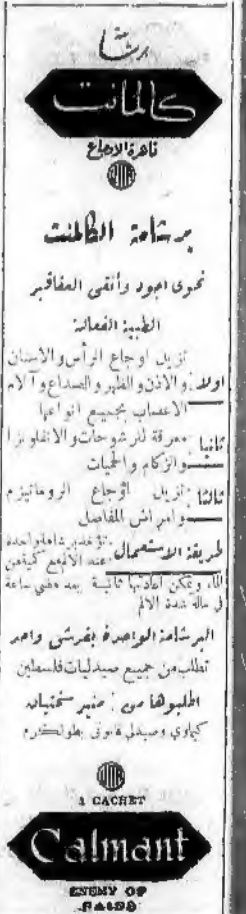 برشامة
كالمانت
قاهرة الاوجاع
برشامة الكالمنت
تحوي اجود وأنقى العقاقير
الطبية الفعالة
اولا: تزيل اوجاع الرأس والاسنان
والاذن والظهر والصداع وآلام
الاعصاب بجميع انواعها
ثانيا: معرقة للرشوحات والانفلونزا
والزكام والحميات
ثالثا: تزيل اوجاع الروماتيزم
وامراض المفاصل
طريقة الاستعمال: تؤخذ برشامة واحدة
عند الالم مع كمية من
الماء ويمكن اعادتها ثانية بعد مضي ساعة
في حالة شدة الالم
البرشامة الواحدة بقرشي واحد
تطلب من جميع صيدليات فلسطين
اطلبوها من: منير سختيان
كيماوي وصيدلي قانوني بطولكرم
1 CACHET
Calmant
ENEMY OF
PAINS